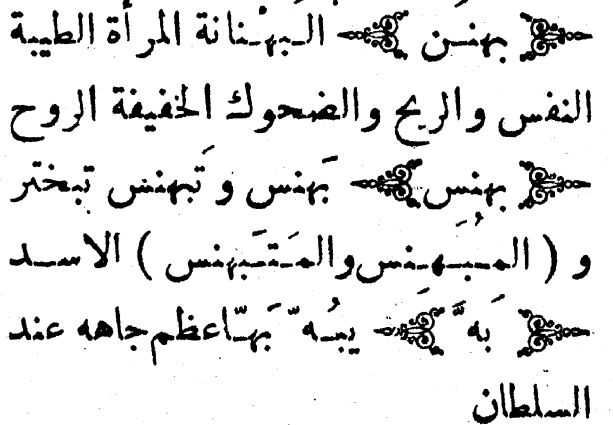 ﴿ بهنـن ﴾ الـبهْـنانة المرأة الطيبة
النفس والريح والضحوك الخفيفة الروح
﴿ بهنس ﴾ بَهنس وتَبهنس تبختر
و ( المُبَـهـنس والمـتَـبهنس ) الاسـد
﴿ بَهَّ ﴾ يبُـهّ بَهـّاعظم جاهه عند
السلطان